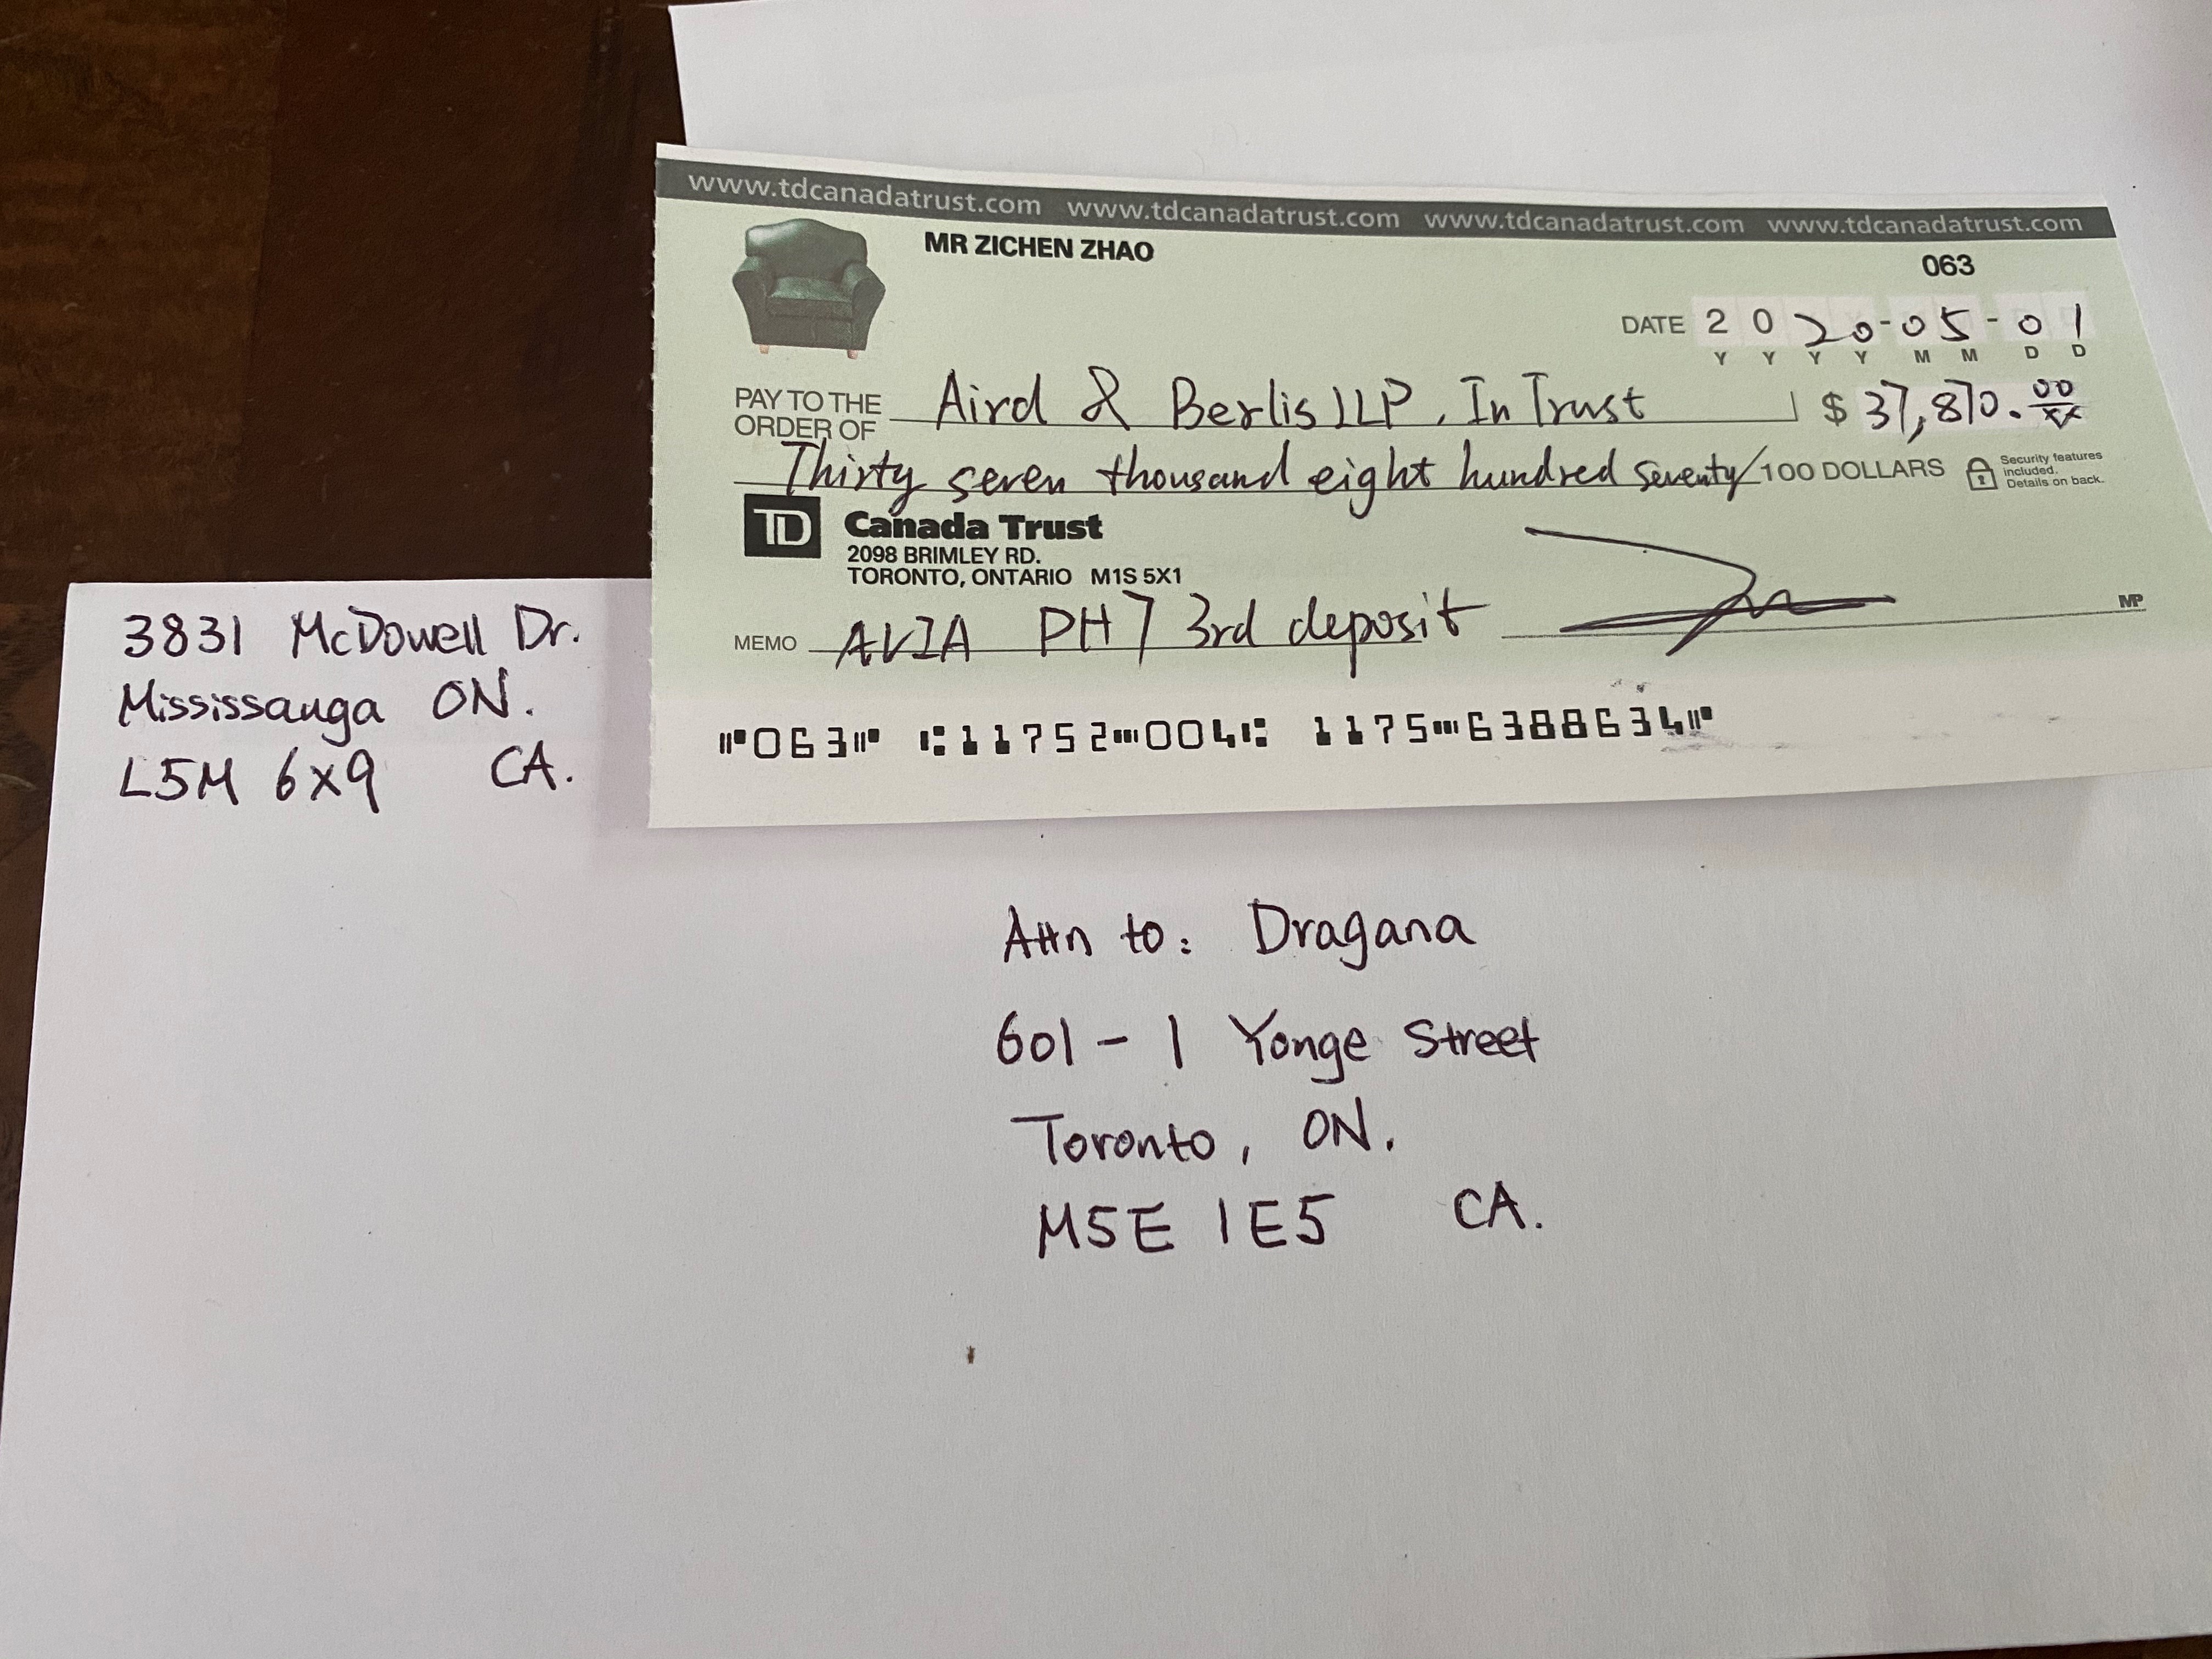 www.tdcanadatrust.com www.tdcanadatrust.com www.tdcanadatrust.com www.tdcanadatrust.com
MR ZICHEN ZHAO
063
DATE 2020-05-01
Y Y Y Y M M D D
PAY TO THE ORDER OF Aird & Berlis LLP, In Trust $ 37,870.00/xx
Thirty seven thousand eight hundred seventy/100 DOLLARS
Security features
included.
Details on back.
TD Canada Trust
2098 BRIMLEY RD.
TORONTO, ONTARIO M1S 5X1
MEMO AVIA PH7 3rd deposit
MP
⑈063⑈ ⑆11752⑉004⑆ 1175⑉6388634⑈
3831 McDowell Dr.
Mississauga ON.
L5M 6X9 CA.
Attn to: Dragana
601 - 1 Yonge Street
Toronto, ON.
M5E 1E5 CA.